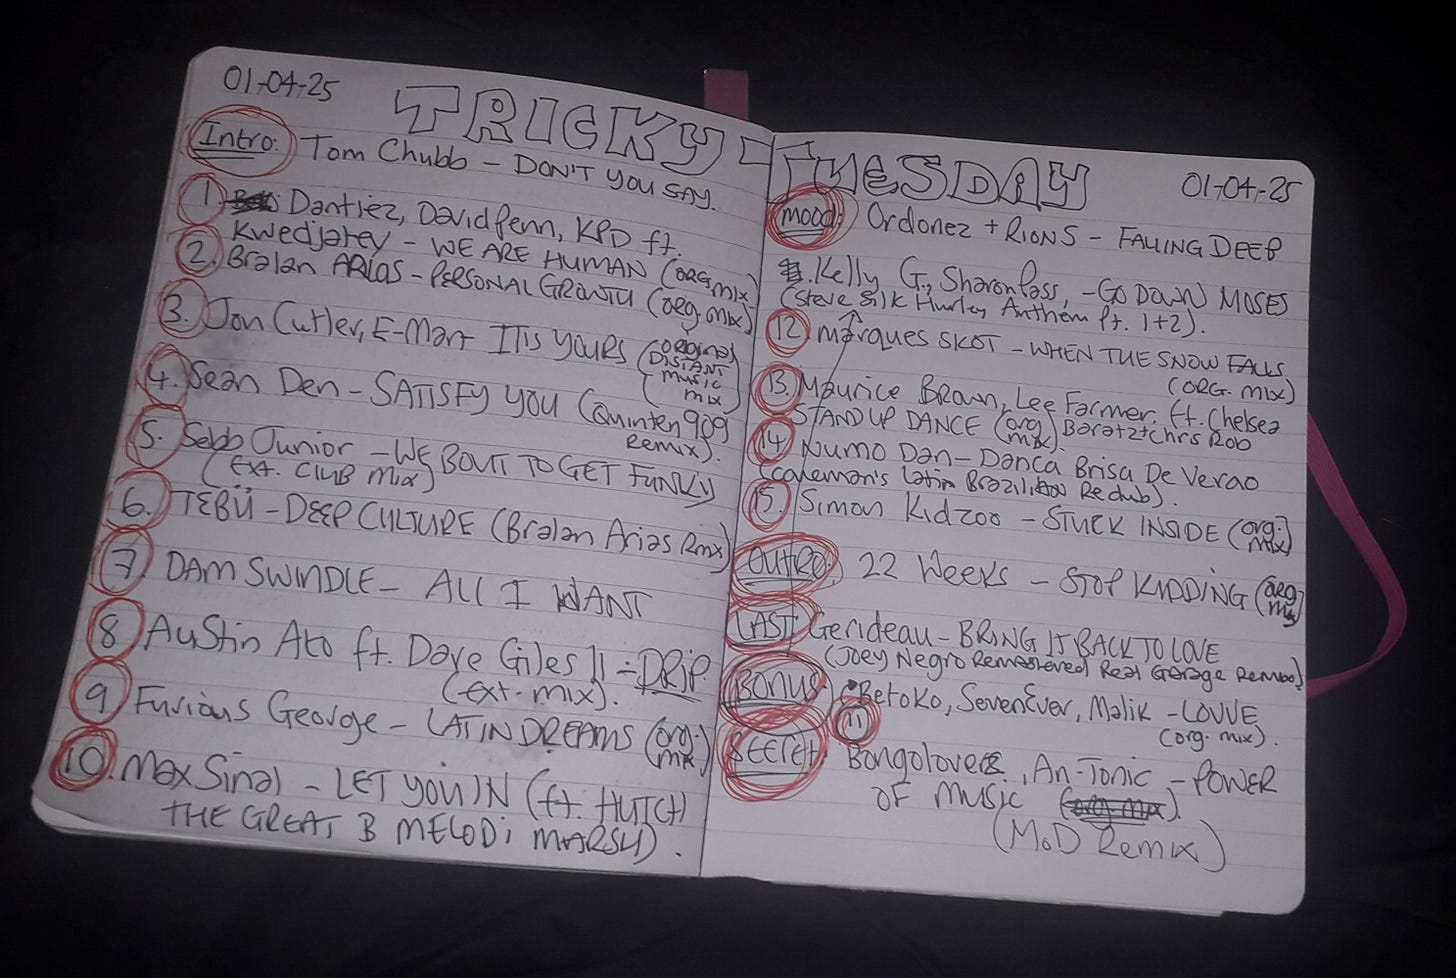 01-04-25
TRICKY-TUESDAY
01-04-25
Intro: Tom Chubb - DON'T YOU SAY.
1. Dantiez, David Penn, KPD ft.
Kwedjatey - WE ARE HUMAN (ORG. MIX)
2. Bralan ARIAS - PERSONAL GROWTH (org. mix)
3. Jon Cutler, E-Man IT IS YOURS (Original
DISTANT
music
mix)
4. Sean Den - SATISFY YOU (Quinten 909
Remix).
5. Sebb Junior - WE BOUT TO GET FUNKY
(Ext. CLUB mix)
6. TEBÜ - DEEP CULTURE (Bralan Arias Rmx)
7. DAM SWINDLE - ALL I WANT
8 Austin Ato ft. Dave Giles II - DRIP
(ext. mix).
9 Furious George - LATIN DREAMS (org. mix)
10. Max Sinal - LET YOU IN (ft. HUTCH
THE GREAT B MELODi MARSH).
mood: Ordonez + RIONS - FALLING DEEP
Kelly G, Sharon Pass, - GO DOWN MOSES
(Steve Silk Hurley Anthem Pt. 1+2).
12. marques SKOT - WHEN THE SNOW FALLS
(ORG. MIX)
13. Maurice Brown, Lee Farmer, ft. Chelsea
STAND UP DANCE (org mix) Baratz + Chris Rob
14 Numo Dan - Danca Brisa De Verao
(caveman's Latin Brazilian Redub).
15. Simon Kidzoo - STUCK INSIDE (org. mix)
OUTRO: 22 Weeks - STOP KIDDING (org mix)
LAST: Gerideau - BRING IT BACK TO LOVE
(Joey Negro Remastered Real Garage Remix)
BONUS: Betoko, SevenEver, Malik - LOVVE
11 (org. mix).
SECRET Bongoloverz, An-Tonic - POWER
OF MUSIC
(MoD Remix)